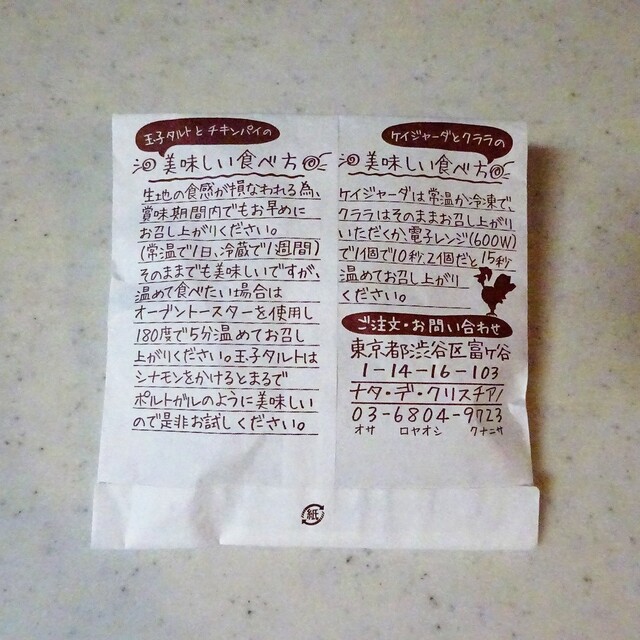 王子タルトとチキンパイの
美味しい食べ方
生地の食感が損なわれる為、
賞味期間内でもお早めに
お召し上がりください。
(常温で1日、冷蔵で1週間)
そのままでも美味しいですが、
温めて食べたい場合は
オーブントースターを使用し
180度で5分温めてお召し
上がりください。王子タルトは
シナモンをかけるとまるで
ポルトガルのように美味しい
ので是非お試しください。
ケイジャーダとクララの
美味しい食べ方
ケイジャーダは常温か冷凍で、
クララはそのままお召し上がり
いただくか、電子レンジ(600W)
で1個で10秒、2個だと15秒
温めてお召し上がり
ください。
ご注文・お問い合わせ
東京都渋谷区富ヶ谷
1-14-16-103
ナタ・デ・クリスチアノ
03-6804-9723
オサ ロヤオシ クナニサ
紙